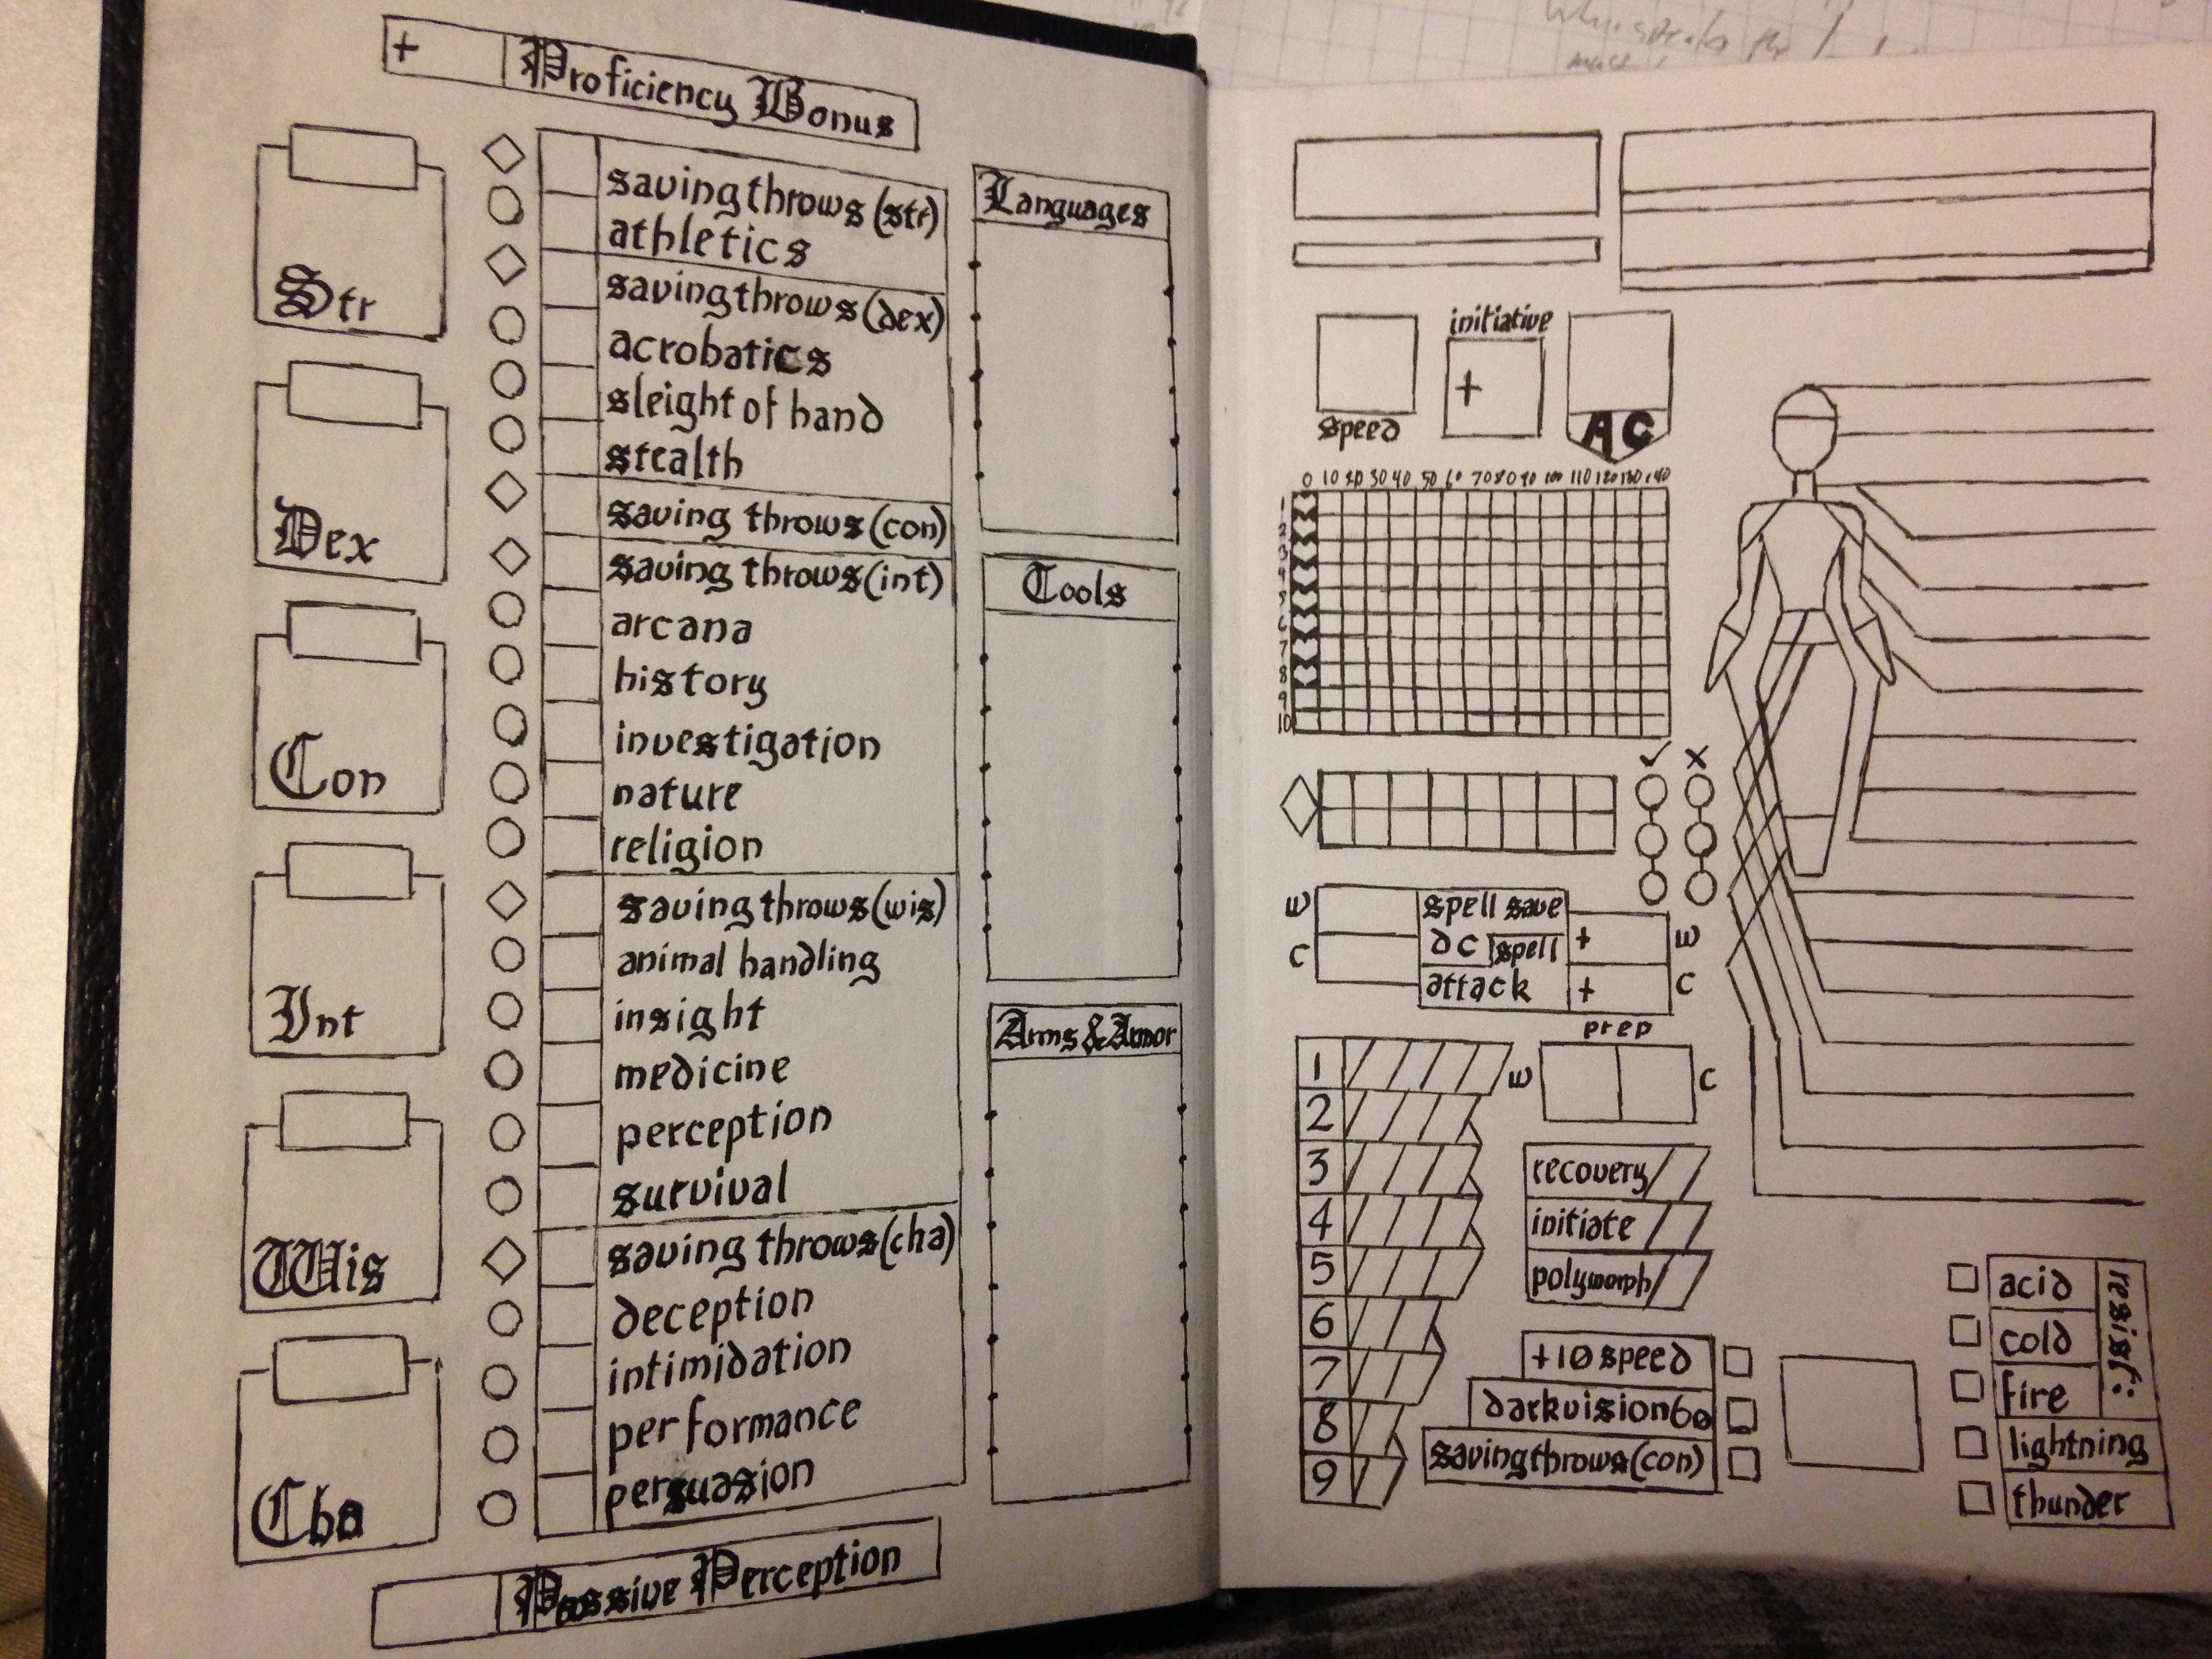 + Proficiency Bonus
Str
Dex
Con
Int
Wis
Cha
saving throws (str)
athletics
saving throws (dex)
acrobatics
sleight of hand
stealth
saving throws (con)
saving throws (int)
arcana
history
investigation
nature
religion
saving throws (wis)
animal handling
insight
medicine
perception
survival
saving throws (cha)
deception
intimidation
performance
persuasion
Passive Perception
Languages
Tools
Arms & Armor
speed
initiative
+
AC
0 10 20 30 40 50 60 70 80 90 100 110 120 130 140
1
2
3
4
5
6
7
8
9
10
✓ x
w
c
spell save
DC spell
attack
+ w
+ c
prep
w c
1
2
3
4
5
6
7
8
9
recovery
initiate
polymorph
+10 speed
darkvision 60
saving throws (con)
resist:
acid
cold
fire
lightning
thunder